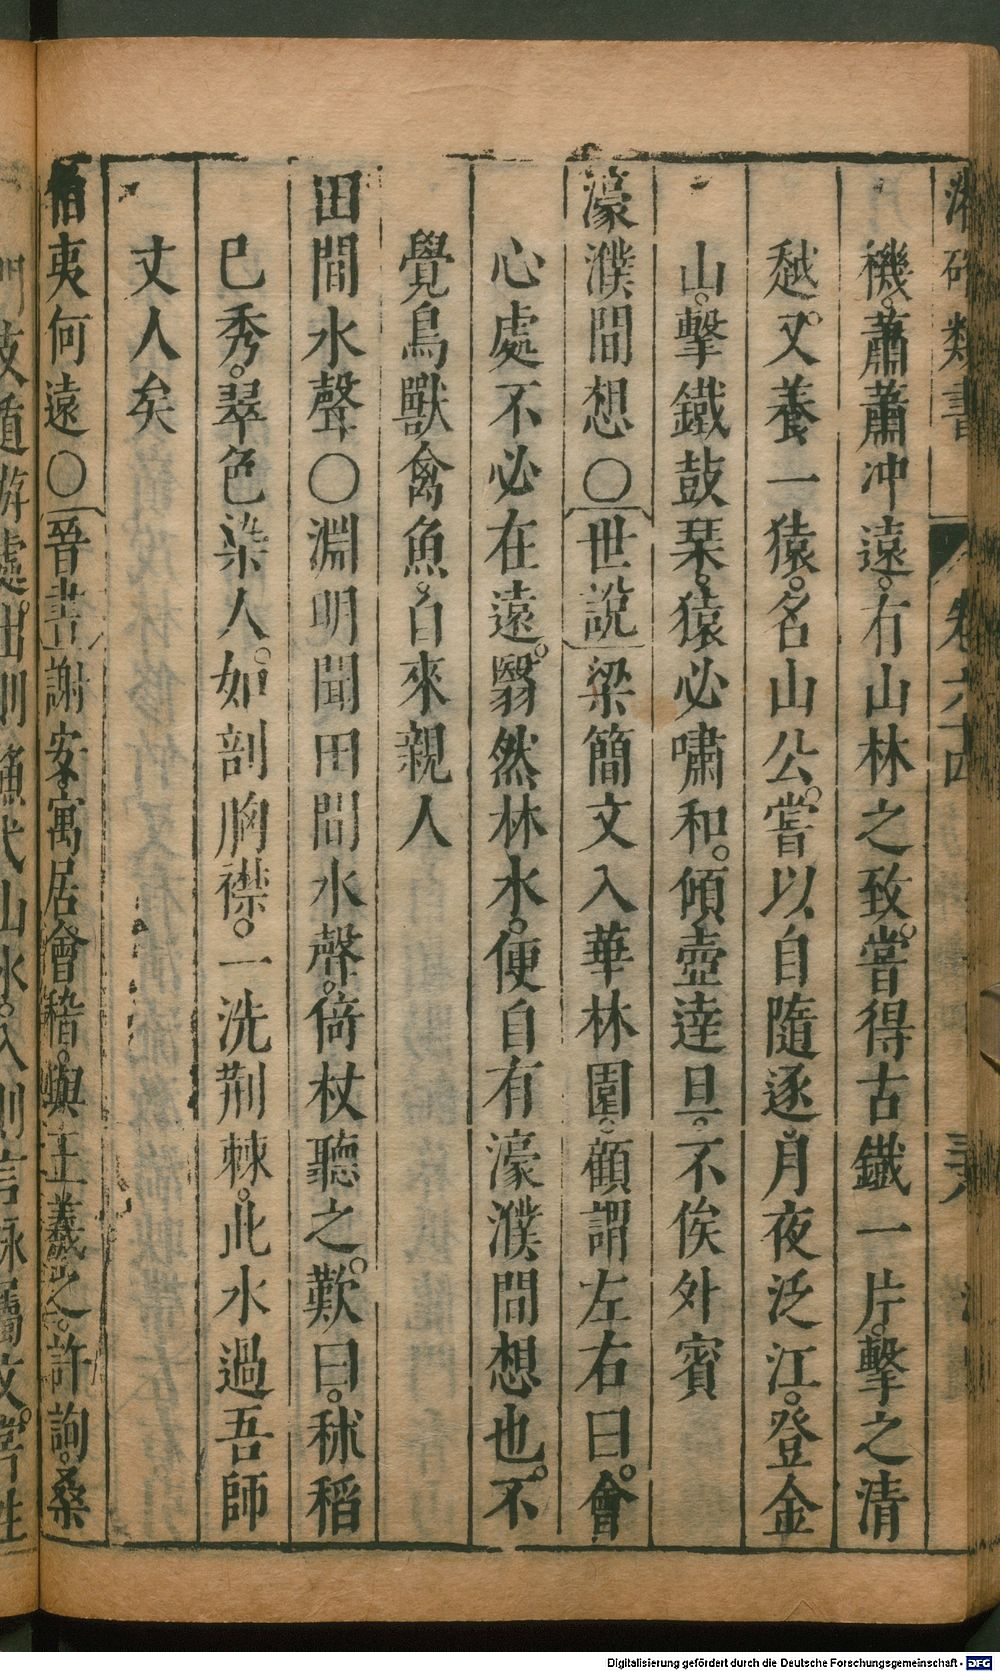 類書 卷六十四
機蕭蕭冲遠有山林之致嘗得古鐵一片擊之清
越又養一猿名山公嘗以自隨逐月夜泛江登金
山擊鐵鼓琹猿必嘯和傾壺達旦不俟外賓
濠濮間想〇世說梁簡文入華林園顧謂左右曰會
心處不必在遠翳然林水便自有濠濮間想也不
覺鳥獸禽魚自來親人
田間水聲〇淵明聞田間水聲倚杖聽之歎曰秫稻
巳秀翠色染人如剖胸襟一洗荆棘此水過吾師
丈人矣
伯夷何遠〇晉書謝安寓居會稽與王義之許詢桑
門支遁游處出則漁弋山水入則言詠屬文嘗往
Digitalisierung gefördert durch die Deutsche Forschungsgemeinschaft - DFG